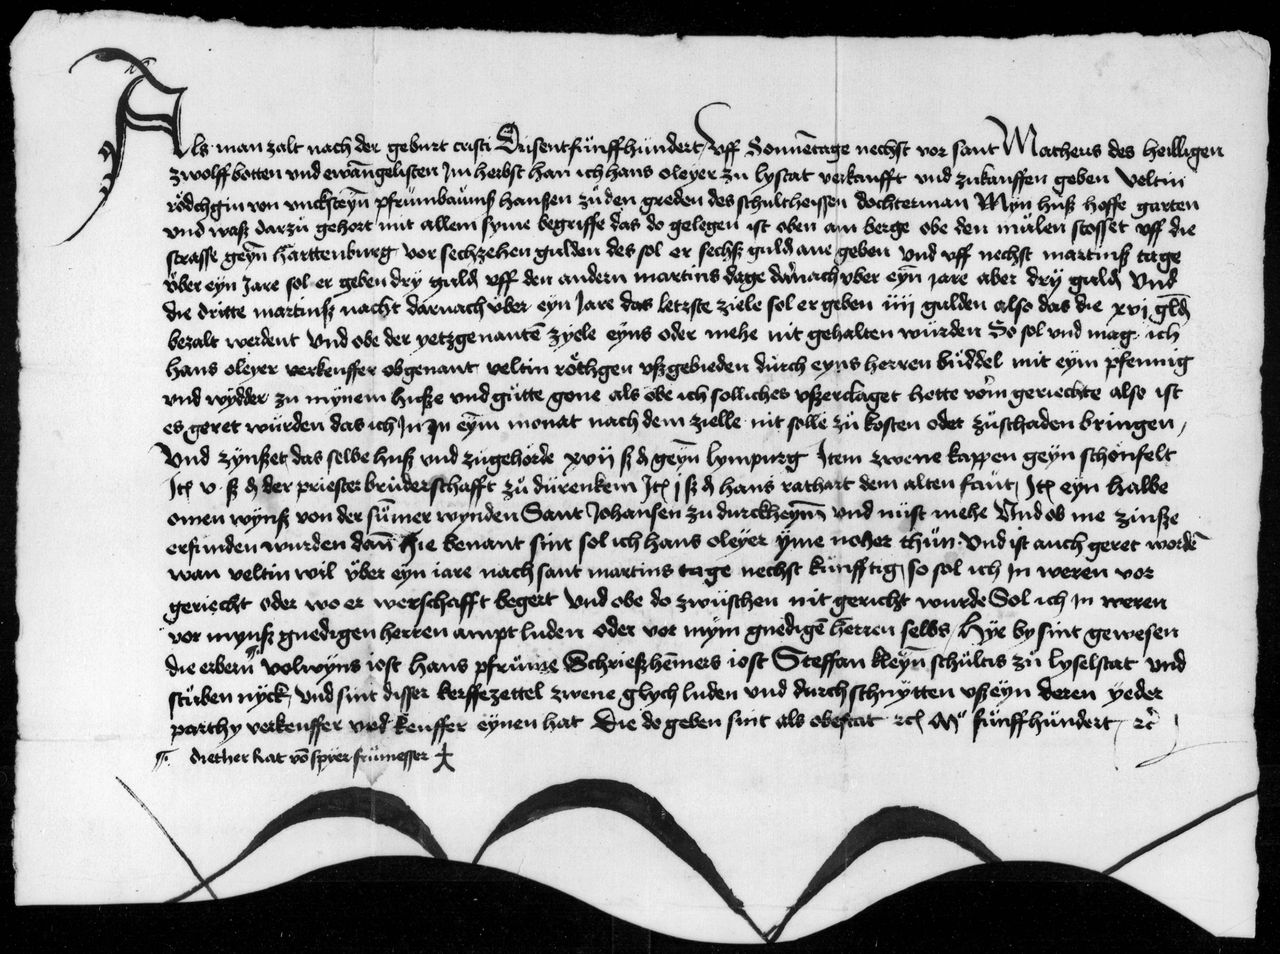 Als man zalt nach der geburt cristi Dusent fünffhündert / Uff Sonnētage nechst vor sant Matheus des heilligen
zwolffbotten vnd ewāngelisten Jm herbst han ich hans oleyer zu lystat verkaufft vnd zukauffen geben veltin
rödchgin von vncksteyn pfrümbaümß hanßen zü den greden des schultheissen dochterman Myn huß hoffe garten
vnd waß darzü gehort mit allem syme begriffe das do gelegen ist oben am berge obe den mülen stosset vff die
strasse geyn harttenburg vor sechzehen gulden des sol er sechß guld ane geben vnd vff nechst martinß tage
über eyn Jare sol er geben dry guld vff den andern martins dage darnach vber eyn jare aber dry guld Vnd
die dritte martinß nacht darnach über eyn Jare das letzste ziele sol er geben iiii gulden also das die xvi gld
bezalt werdent vnd obe der yetzgenantē zyele eyns oder mehe nit gehalten würden So sol vnd mag ich
hans oleyer verkeuffer obgenant veltin röthgen vßgebieden durch eyns herren büddel mit eym pfennig
vnd wydder zu mynem huße vnd gütte gone als obe ich solliches vßerclaget hette vorm geriechte also ist
es geret würden das ich Jn Jn eym monat nach dem zielle nit solle zü kosten oder züschaden bringen /
Vnd zynßet das selbe huß vnd zugehörde xvii ß d geyn lympurg Jtem zwene kappen geyn schönfelt
Jt v ß d der priester brüderschafft zü dürenkem Jt j ß d hans rathart dem alten faut / Jt eyn halbe
omen wynß von der sümer wynden Sant Johansen zu durckheym vnd nüst mehe Vnd ob me zinße
erfunden wurden dan hie benant sint sol ich hans oleyer yme noher thün Vnd ist auch geret wordē
wan veltin wil über eyn iare nach sant martins tage nechst künfftig / so sol ich Jn weren vor
geriecht oder wo er werschafft begert Vnd obe do zwüschen nit gericht wurde Sol ich Jn weren
vor mynß gnedigen herren ampt luden oder vor mym gnedigē herren selbs / Hye by sint gewesen
die erbern volwyns jost hans pfrüme Schrießhemers jost Steffan kleyn schültis zü lyselstat vnd
stüben nyck / vnd sint disser kerffezettel zwene glych luden vnd durch schnytten vß eyn deren yeder
parthy verkeuffer vnd keuffer eynen hat Die de geben sint als obestat rc M° fünffhündert / rc
diether kat vō spyer früimesser